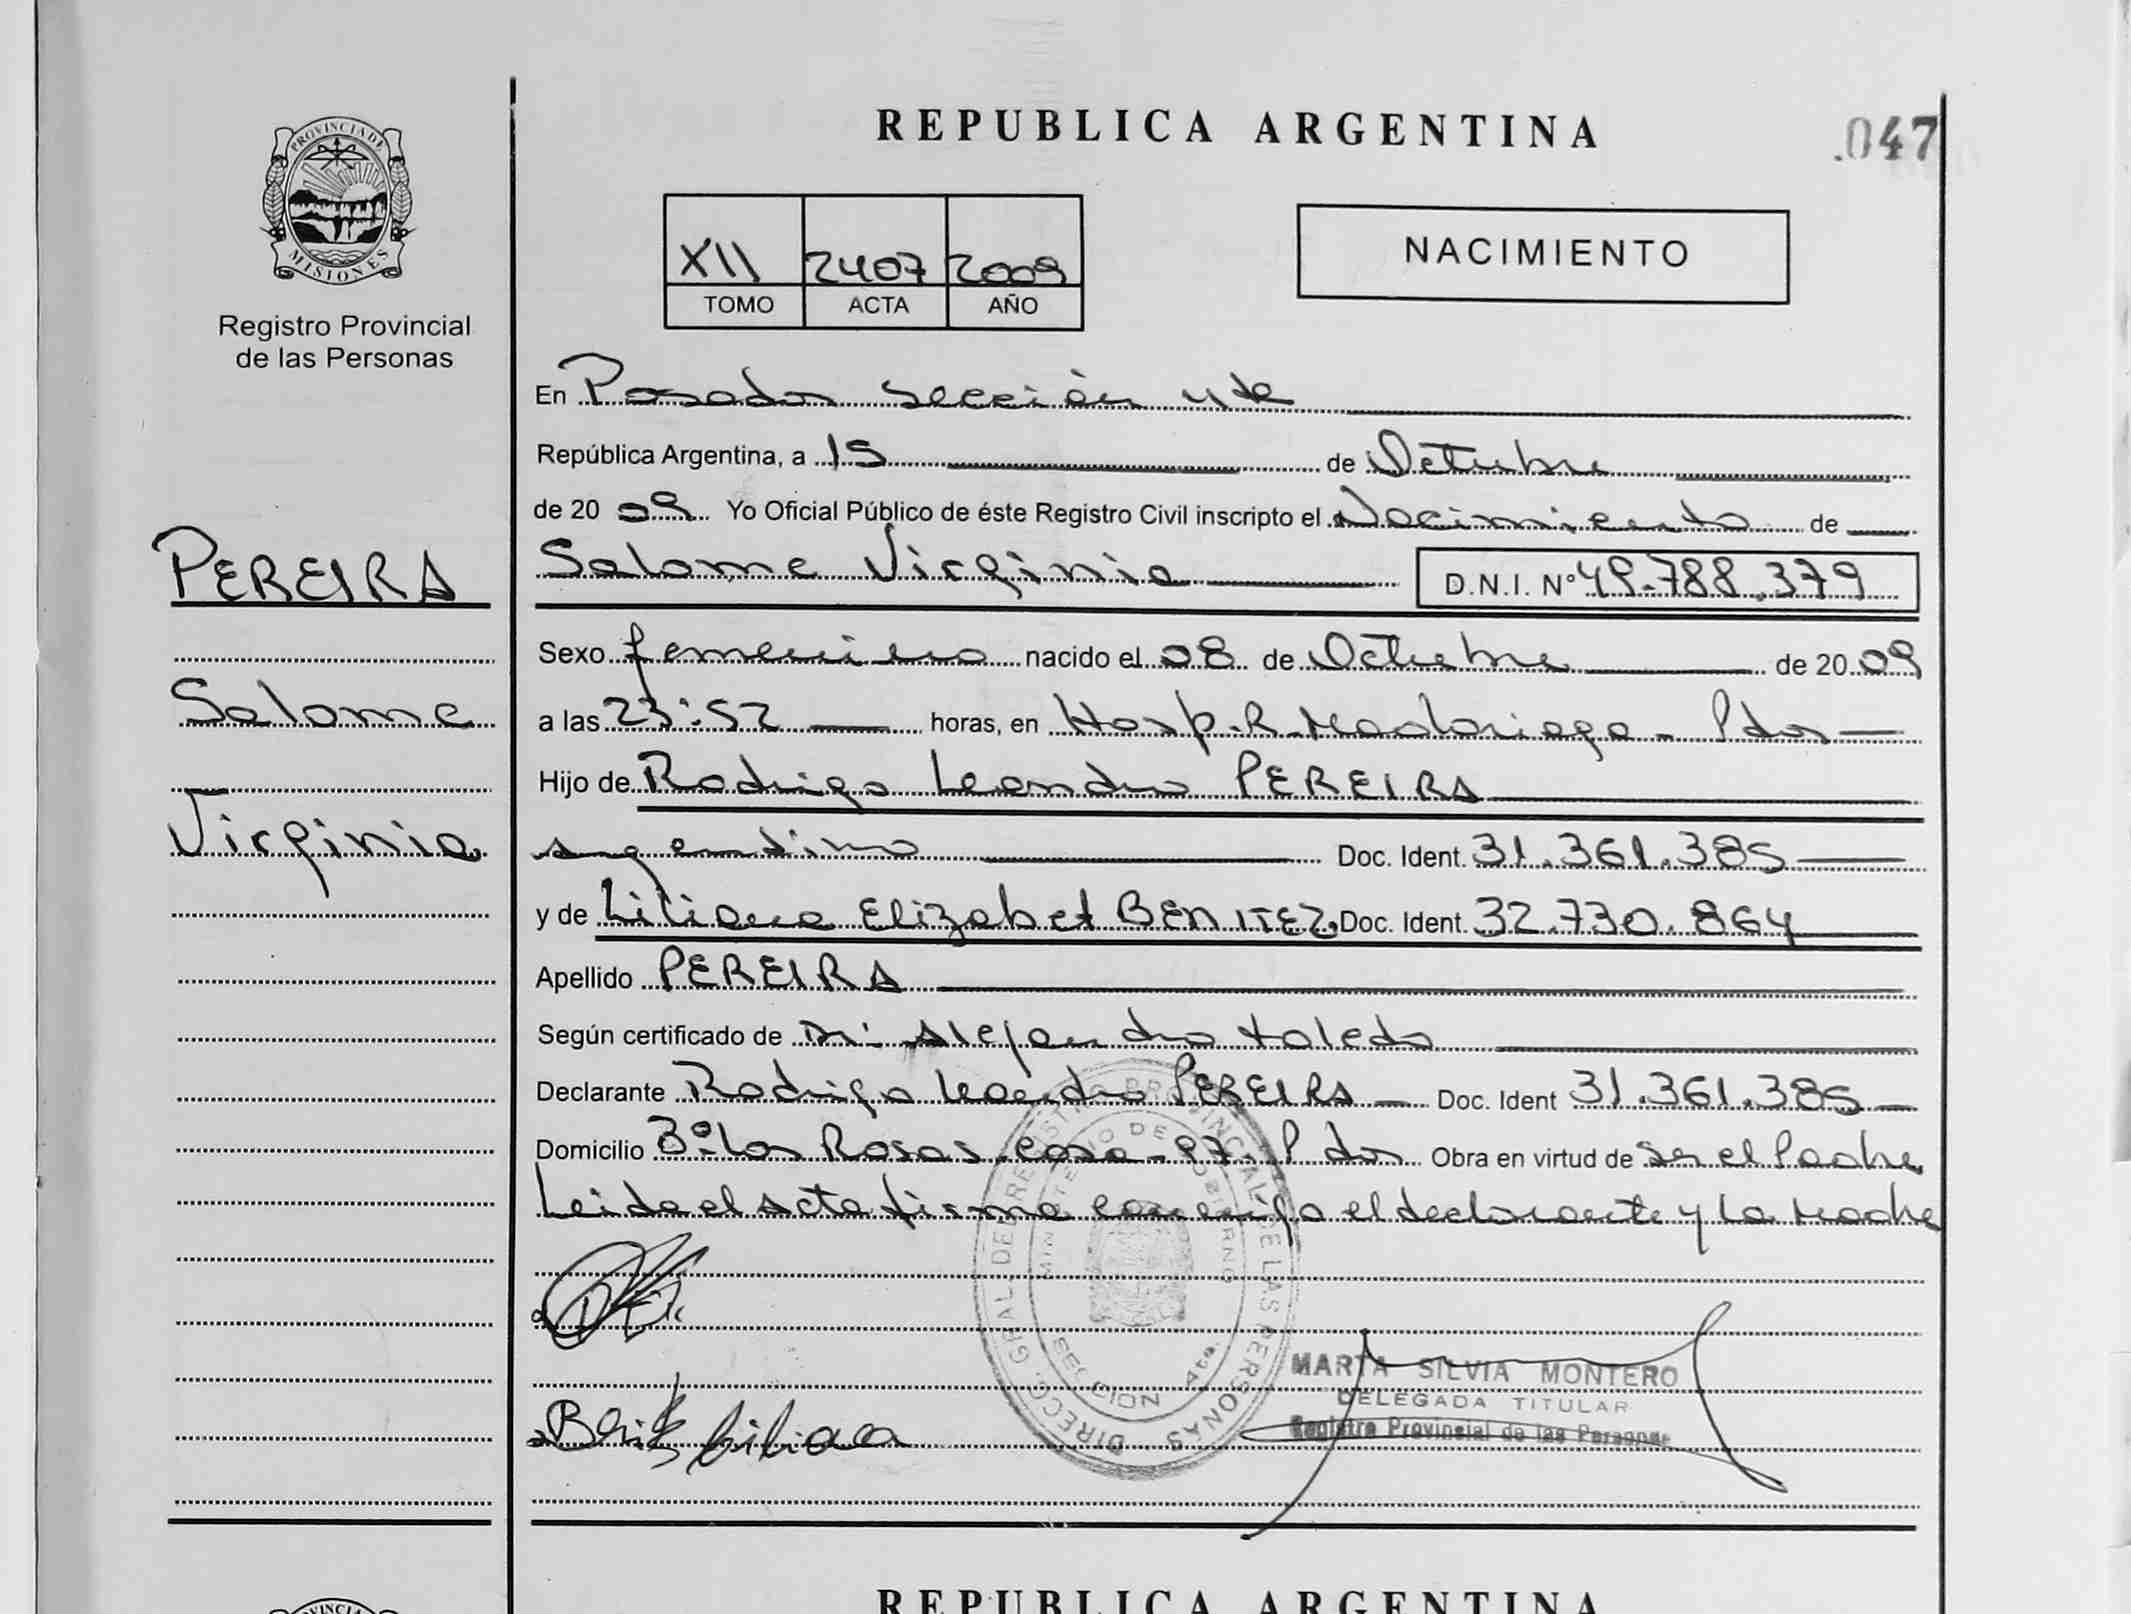 REPUBLICA ARGENTINA
.047
PROVINCIA DE
MISIONES
Registro Provincial
de las Personas
XII 2407 2009
TOMO ACTA AÑO
NACIMIENTO
En Posadas sección 4ta
República Argentina, a 15 de Octubre
de 20 09 Yo Oficial Público de éste Registro Civil inscripto el Nacimiento de
PEREIRA
Salome
Virginia
Salome Virginia D.N.I. Nº 49.788.379
Sexo femenino nacido el 08 de Octubre de 20 09
a las 23:52 horas, en Hosp. R. Madariaga - Pdas
Hijo de Rodrigo Leandro PEREIRA
argentino Doc. Ident. 31.361.385
y de Liliana Elizabet BENITEZ. Doc. Ident. 32.730.864
Apellido PEREIRA
Según certificado de Dr. Alejandro Toledo
Declarante Rodrigo Leandro PEREIRA Doc. Ident 31.361.385
Domicilio Bº Las Rosas casa - 97 - Pdas Obra en virtud de ser el Padre
Leida el acta firma conmigo el declarante y la Madre
DIRECC. GRAL. DE REGISTRO PROVINCIAL DE LAS PERSONAS
MINISTERIO DE GOBIERNO
SECCION 4ta.
MARTA SILVIA MONTERO
DELEGADA TITULAR
Registro Provincial de las Personas
Liliana
REPUBLICA ARGENTINA